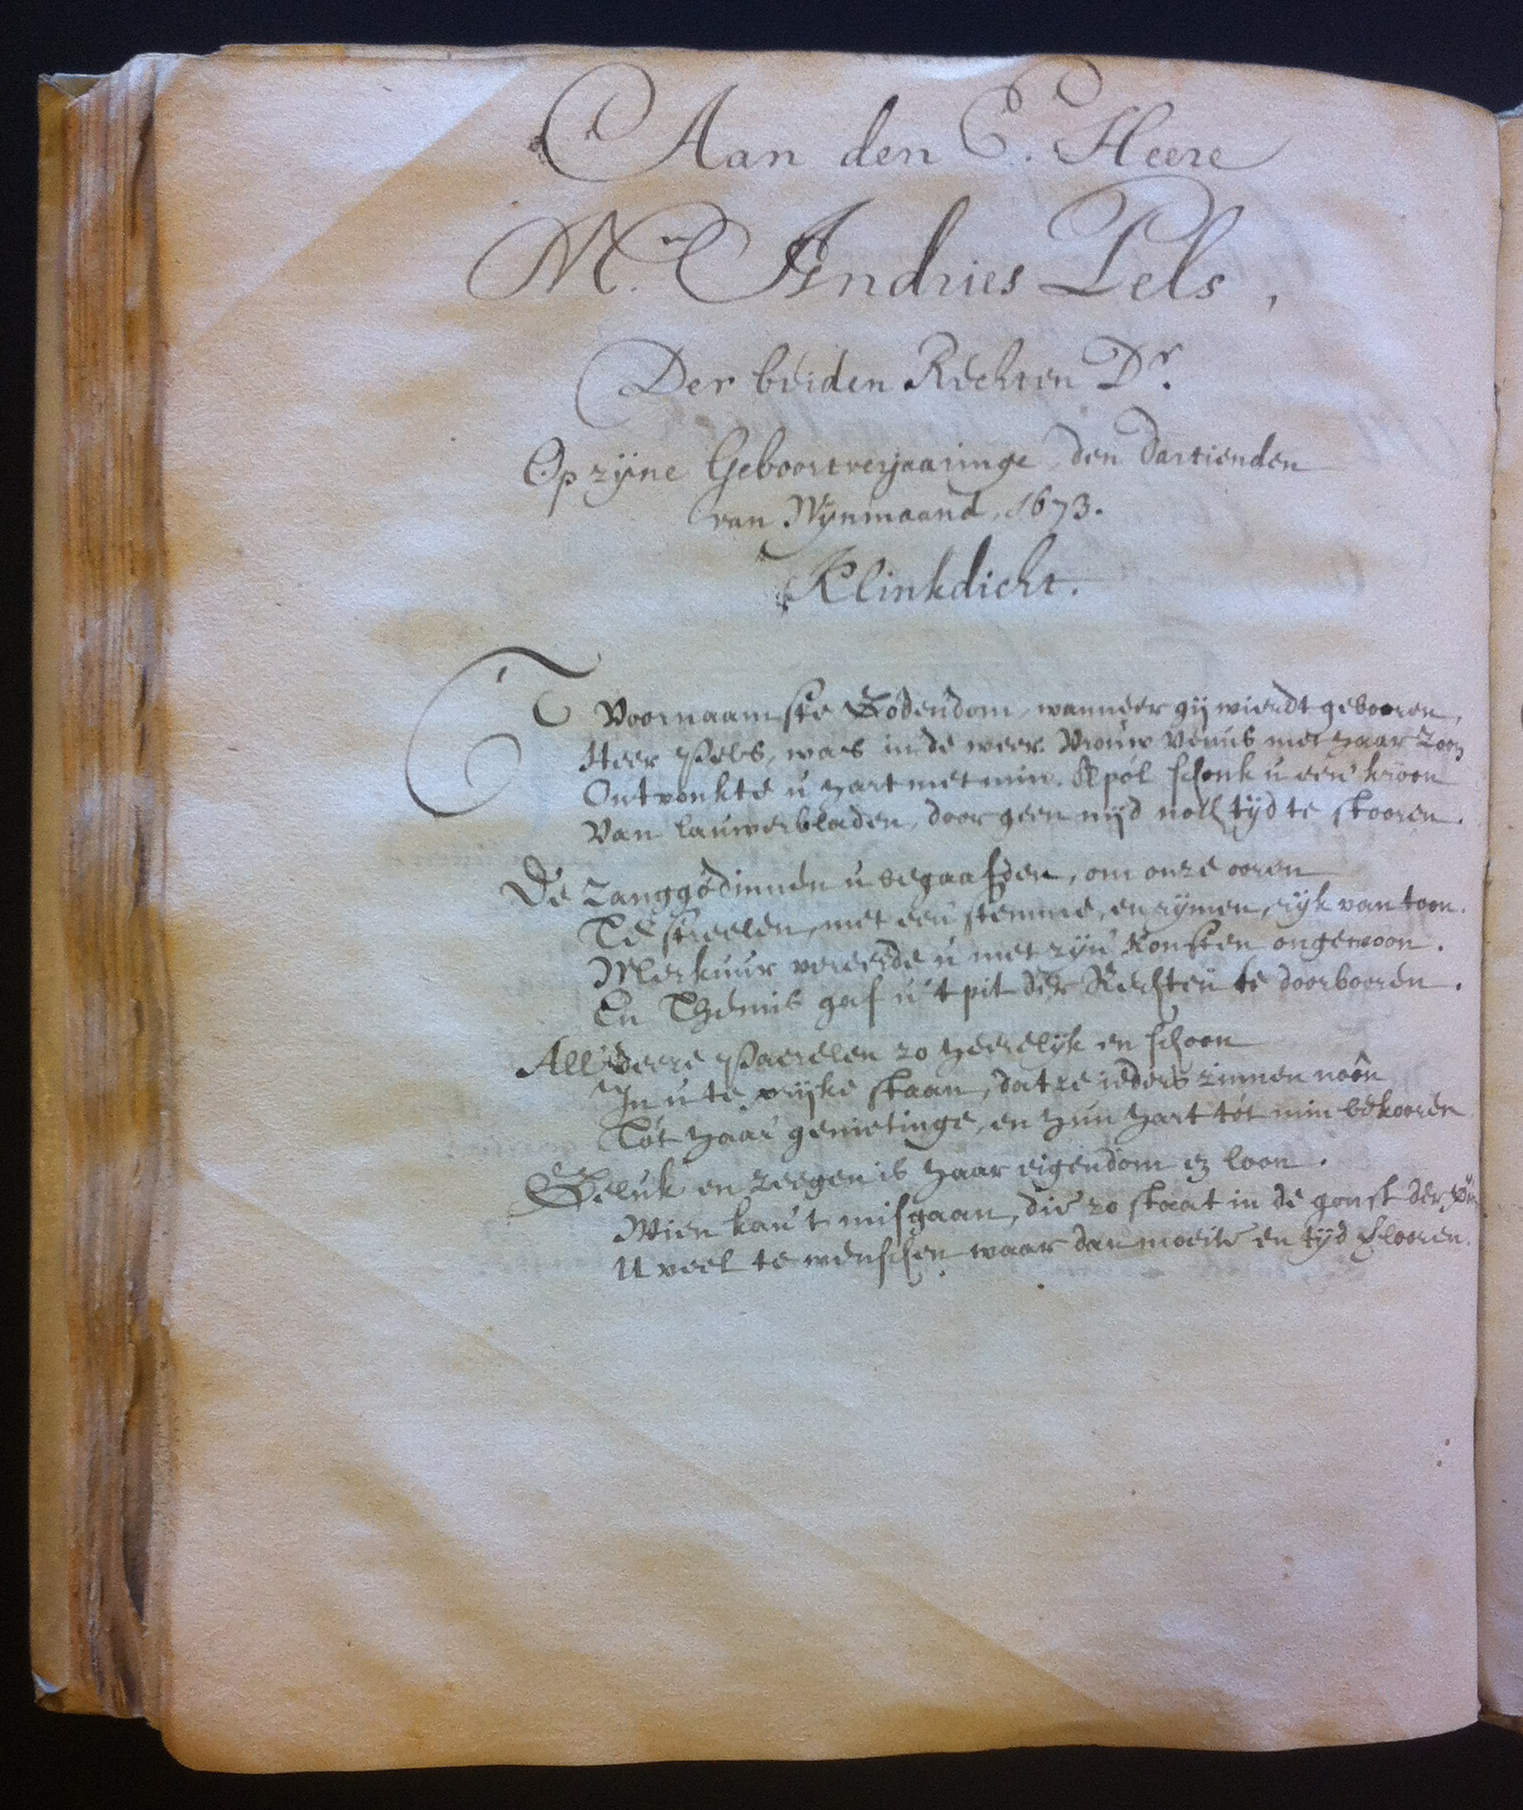 Aan den E. Heere
Mr. Andries Pels,
Der beiden Rechten Dr.
Op zijne Geboortverjaaringe den dartienden
van Wijnmaand, 1673.
Klinkdicht.
T Voornaamste Godendom, wanneer gij wierdt gebooren,
Heer Pels, was in de weer. Vrouw Venus met haar Zoon
Ontvonkte u hart met min. Apól schonk u een kroon
Van lauwerbladen, door geen nijd noch tijd te stooren.
De Zanggodinnen u begaafden, om onze ooren
Te streelen, met een stemme, en rijmen, rijk van toon.
Merkuur vereerde u met zijn Konsten ongewoon.
En Themis gaf u 't pit der Rechten te doorbooren.
All' deeze Paerelen zo heerelijk en schoon
In u te prijke staan, dat ze ieders zinnen noôn
Tót haar genietinge, en hun hart tót min bekooren
Geluk en zeegen is haar eigendom en loon.
Wien kan 't misgaan, die zo staat in de gonst der
U veel te wenschen waar dan moeite en tijd verlooren.